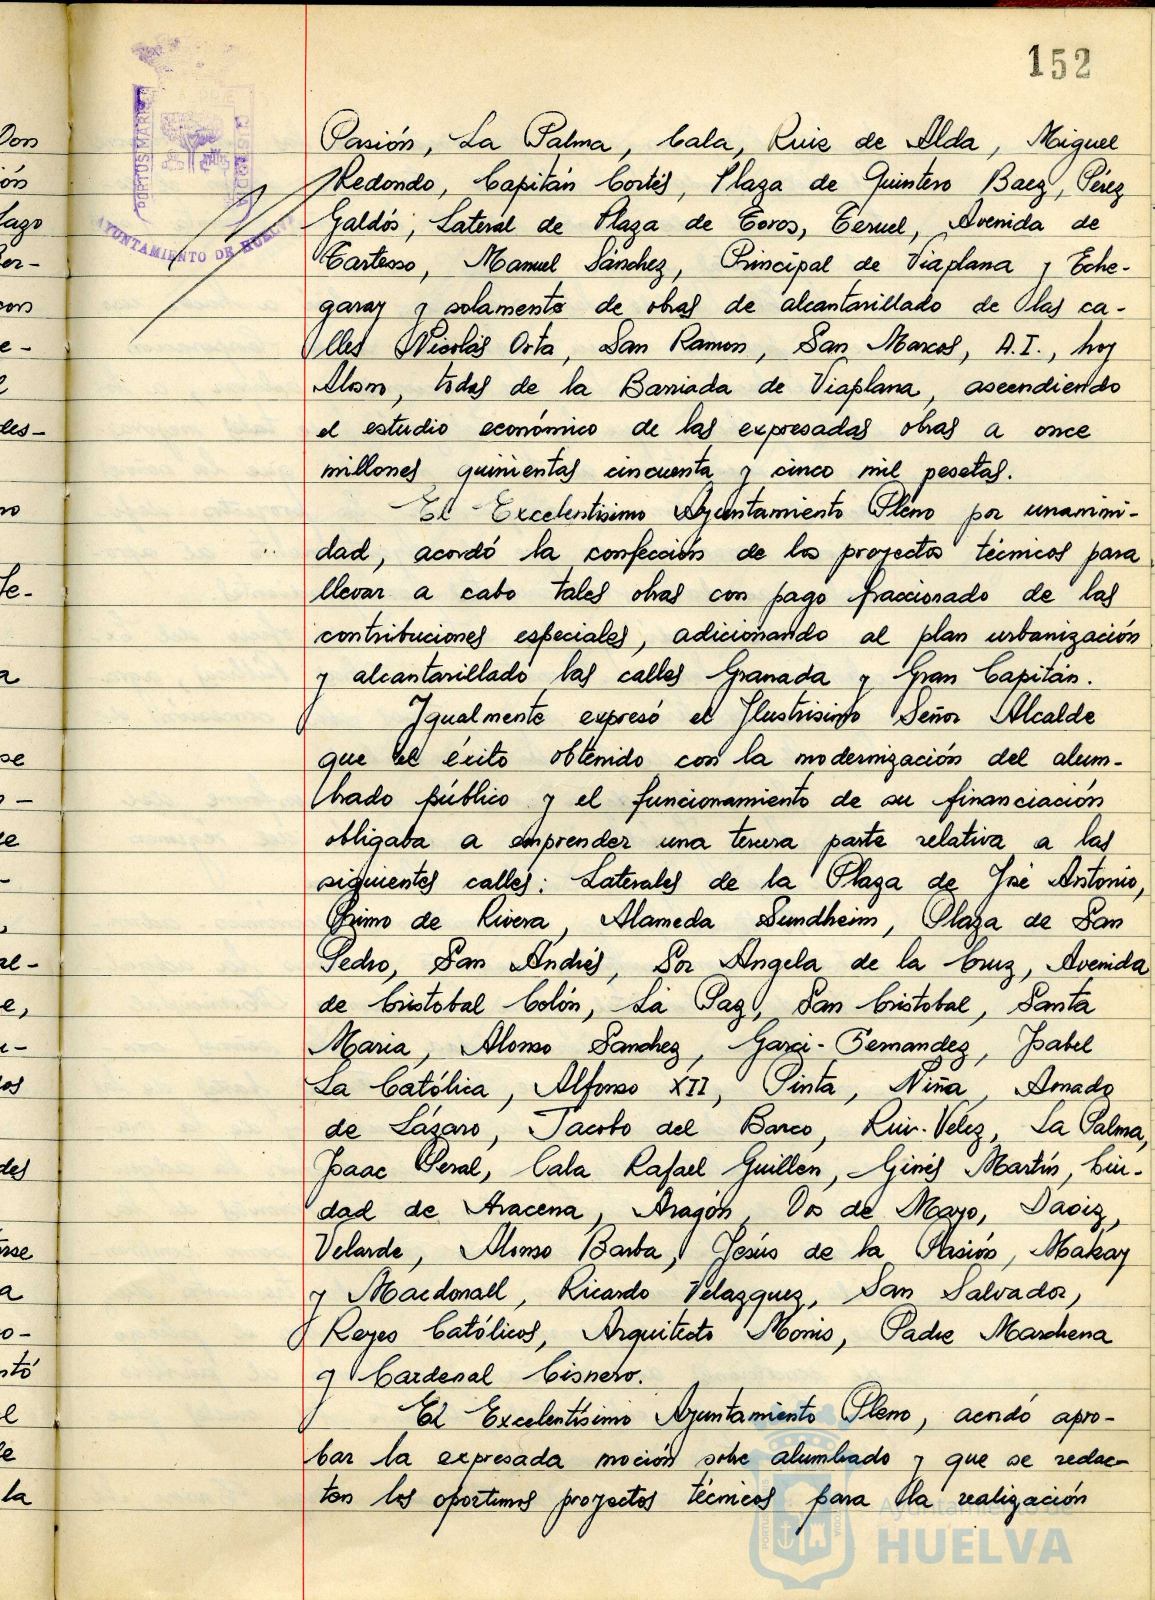 152
PORTUS MARIS
CUSTODIA
AYUNTAMIENTO DE HUELVA
Pasión, La Palma, Cala, Ruiz de Alda, Miguel
Redondo, Capitán Cortés, Plaza de Quintero Baez, Pérez
Galdós, Lateral de Plaza de Toros, Teruel, Avenida de
Tartesso, Manuel Sánchez, Principal de Viaplana y Eche-
garay y solamente de obras de alcantarillado de las ca-
lles Nicolás Orta, San Ramon, San Marcos, A.I., hoy
Alosno, todas de la Barriada de Viaplana, ascendiendo
el estudio económico de las expresadas obras a once
millones quinientas cincuenta y cinco mil pesetas.
El Excelentisimo Ayuntamiento Pleno por unanimi-
dad, acordó la confección de los proyectos técnicos para
llevar a cabo tales obras con pago fraccionado de las
contribuciones especiales, adicionando al plan urbanización
y alcantarillado las calles Granada y Gran Capitán.
Igualmente expresó el Ilustrisimo Señor Alcalde
que el éxito obtenido con la modernización del alum-
brado público y el funcionamiento de su financiación
obligaba a emprender una tercera parte relativa a las
siguientes calles: Laterales de la Plaza de José Antonio,
Primo de Rivera, Alameda Sundheim, Plaza de San
Pedro, San Andrés, Sor Angela de la Cruz, Avenida
de Cristobal Colón, La Paz, San Cristobal, Santa
Maria, Alonso Sanchez, Garci-Fernandez, Isabel
La Católica, Alfonso XII, Pinta, Niña, Amado
de Lázaro, Jacobo del Barco, Rui-Vélez, La Palma,
Isaac Peral, Cala Rafael Guillén, Ginés Martín, Ciu-
dad de Aracena, Aragón, Dos de Mayo, Daoiz,
Velarde, Alonso Barba, Jesús de la Pasión, Makay
y Macdonall, Ricardo Velazquez, San Salvador,
Reyes Católicos, Arquitecto Monis, Padre Marchena
y Cardenal Cisnero.
El Excelentísimo Ayuntamiento Pleno, acordó apro-
bar la expresada moción sobre alumbrado y que se redac-
ten los oportunos proyectos técnicos para la realización
Ayuntamiento de
HUELVA